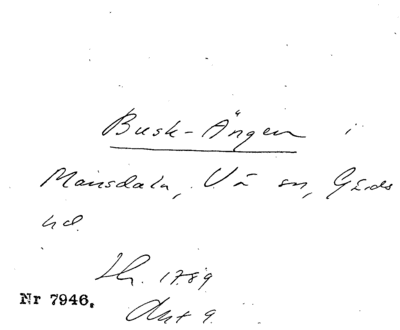 Busk-Ängen i
Mansdala, Vä sn, Gärds
hd.
Lh. 1789
Akt 9.
Nr 7946.